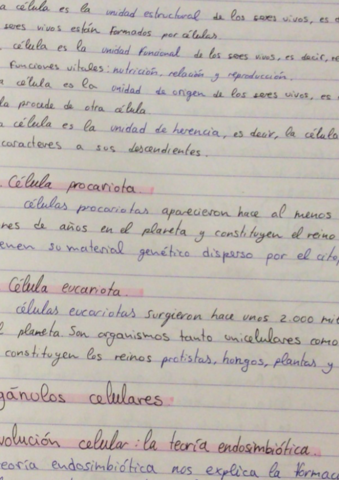 a célula es la unidad estructural de los seres vivos, es d
seres vivos están formados por células.
célula es la unidad funcional de los seres vivos, es decir, re
funciones vitales: nutrición, relación y reproducción.
a célula es la unidad de origen de los seres vivos, es
la procede de otra célula.
a célula es la unidad de herencia, es decir, la célula
caracteres a sus descendientes.
Célula procariota.
células procariotas aparecieron hace al menos
nes de años en el planeta y constituyen el reino
enen su material genético disperso por el cito
Célula eucariota.
células eucariotas surgieron hace unos 2.000 mil
l planeta. Son organismos tanto unicelulares como
constituyen los reinos protistas, hongos, plantas y
gánulos celulares
volución celular: la teoría endosimbiótica
eoría endosimbiótica nos explica la formac